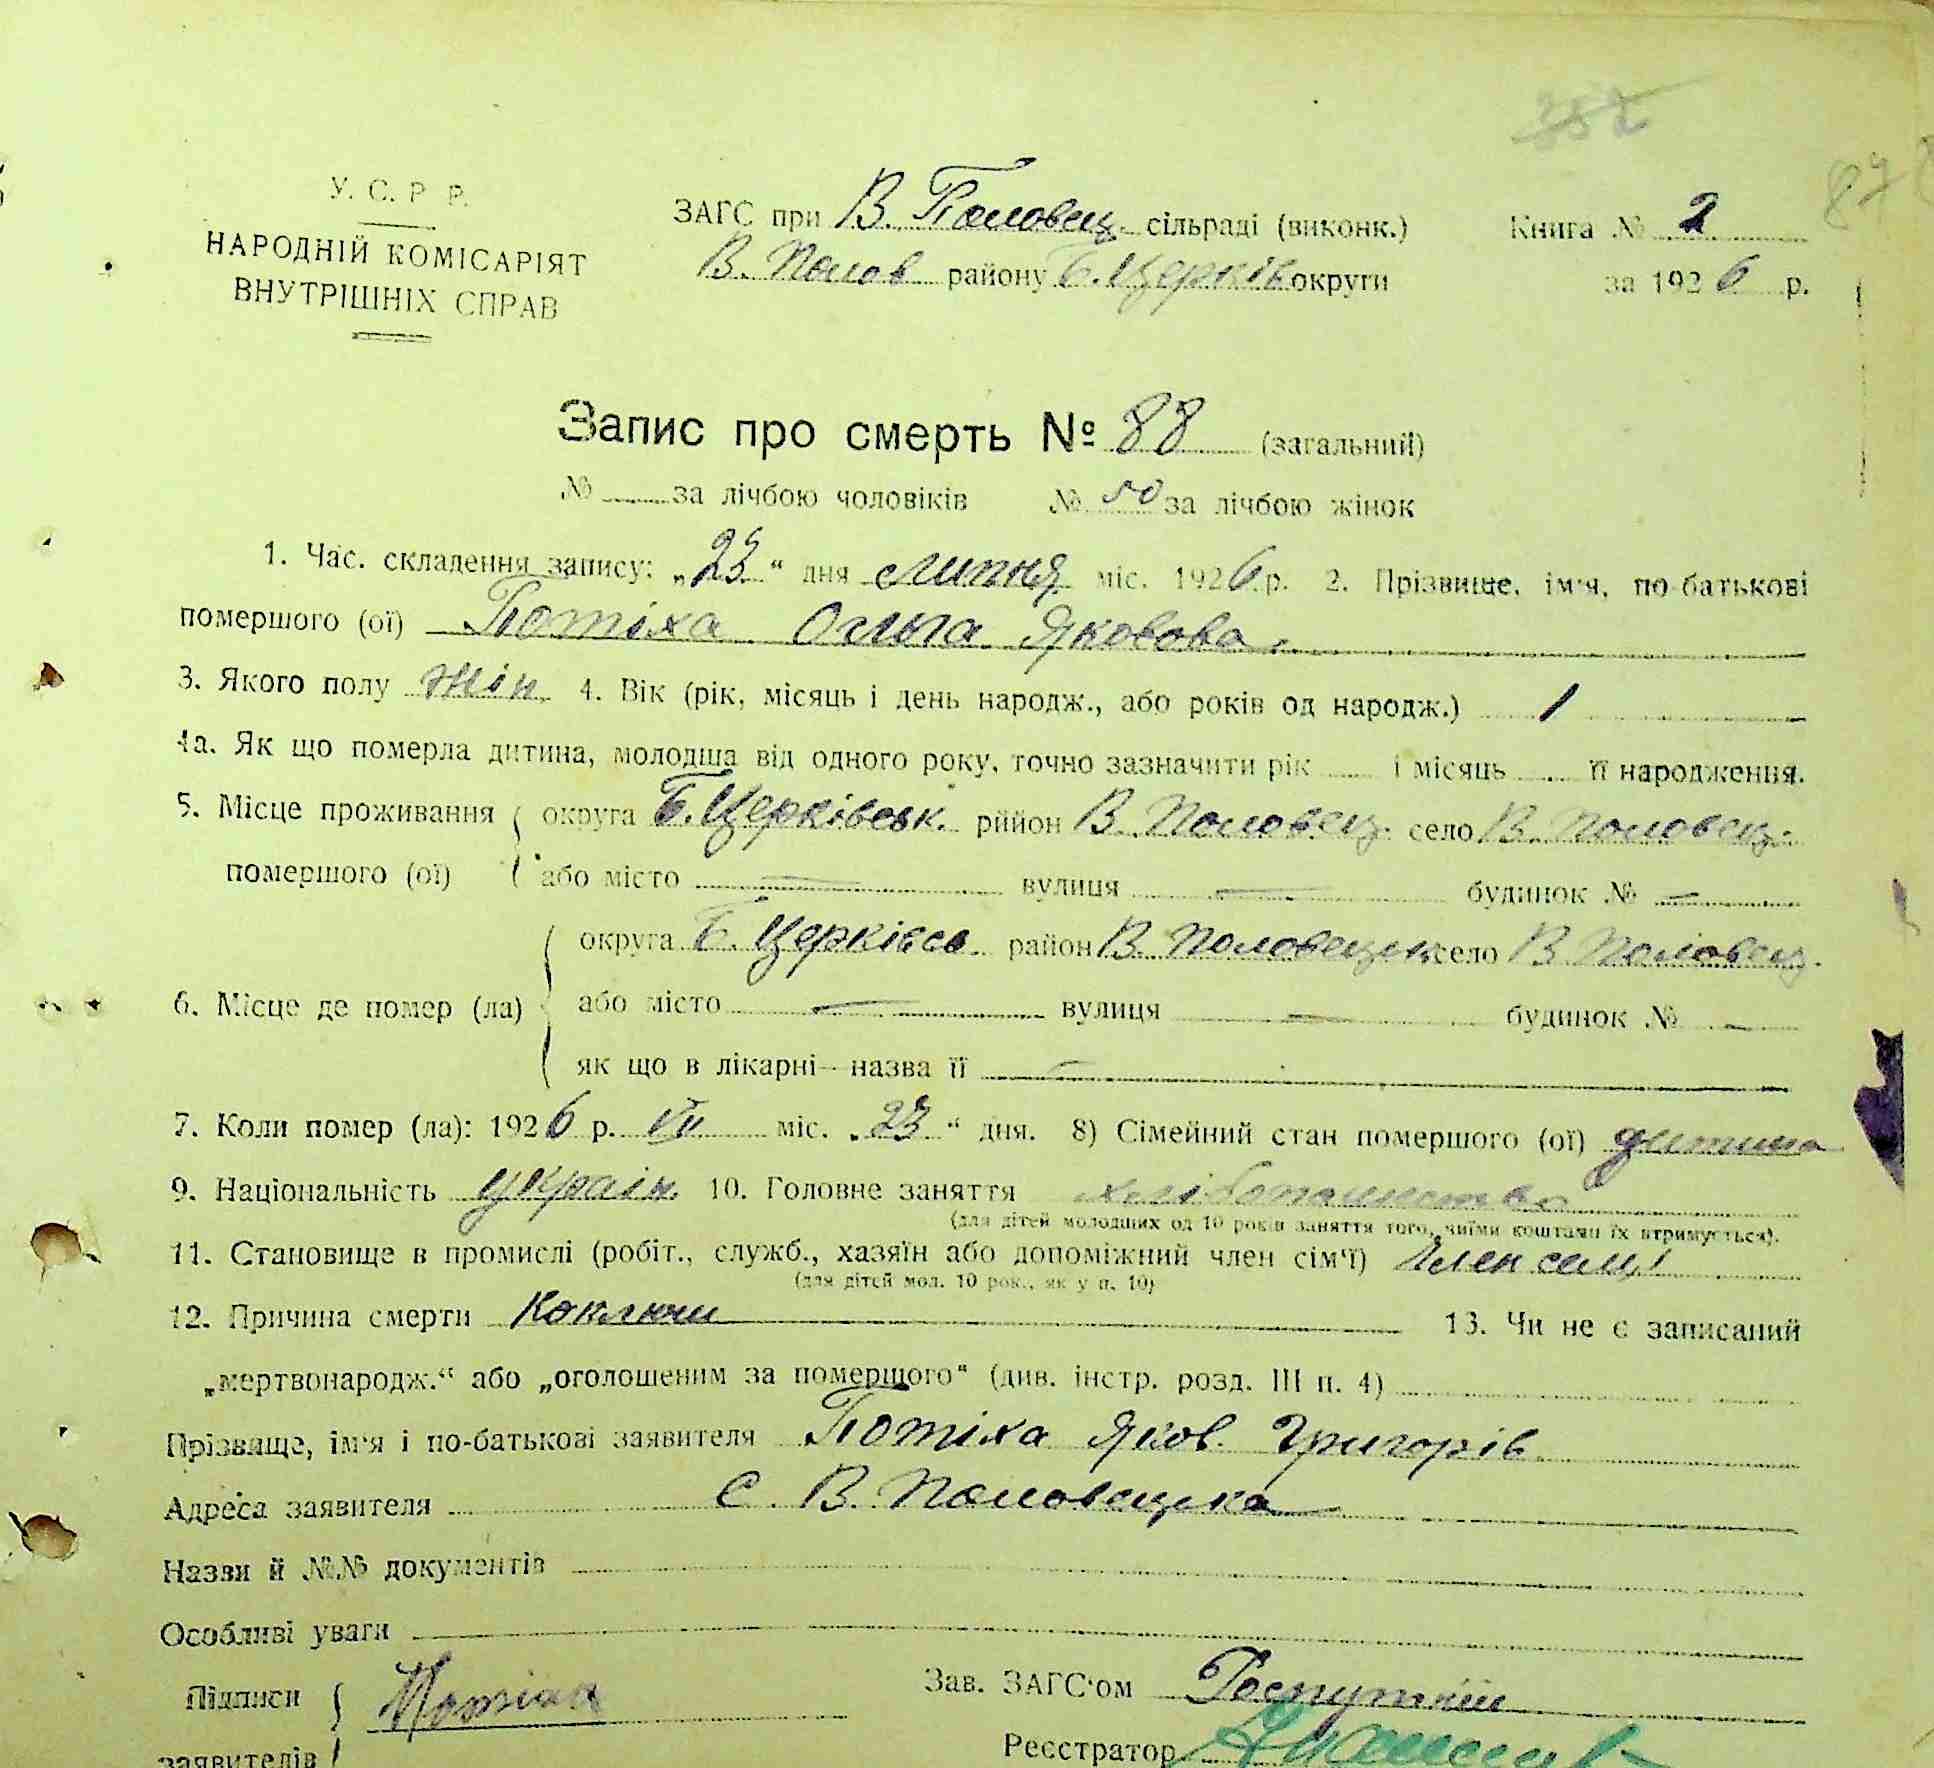 352
87
У. С. Р. Р.
НАРОДНІЙ КОМІСАРІЯТ
ВНУТРІШНІХ СПРАВ
ЗАГС при В. Половец. сільраді (виконк.) Книга № 2
В. Полов району Б. Церків округи за 1926 р.
Запис про смерть № 88 (загальний)
№ за лічбою чоловіків № 50 за лічбою жінок
1. Час. складення запису: „23“ дня липня міс. 1926 р. 2. Прізвище, ім'я, по-батькові
помершого (ої) Потіха Ольга Яковова.
3. Якого полу жін. 4. Вік (рік, місяць і день народж., або років од народж.) 1
4а. Як що померла дитина, молодша від одного року, точно зазначити рік і місяць її народження.
5. Місце проживання округа Б. Церківськ. рийон В. Половец. село В. Половец.
помершого (ої) або місто — вулиця — будинок № —
округа Б. Церківсь. район В. Половецьк село В Половец.
6. Місце де помер (ла) або місто — вулиця — будинок № —
як що в лікарні—назва її —
7. Коли помер (ла): 1926 р. VII міс. „23“ дня. 8) Сімейний стан помершого (ої) дитина
9. Національність україн. 10. Головне заняття хлібопашество
(для дітей молодших од 10 років заняття того, чиїми коштами їх втримується).
11. Становище в промислі (робіт., служб., хазяїн або допоміжний член сім'ї) Член семі
(для дітей мол. 10 рок., як у п. 10)
12. Причина смерти Коклюш 13. Чи не є записаний
„мертвонародж.“ або „оголошеним за помершого“ (див. інстр. розд. III п. 4)
Прізвище, ім'я і по-батькові заявителя Потіха Яков. Григорів.
Адреса заявителя с. В. Половецка
Назви й №№ документів
Особливі уваги
Підписи Потіха Зав. ЗАГС'ом Роспутній
заявителів Реєстратор